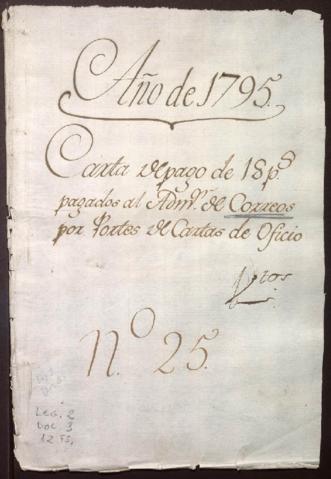 Año de 1795.
Carta de pago de 18 p.s
pagados al Adm.r de Correos
por Portes de Cartas de Oficio
N.o 25.
Leg. 2
Doc. 3
12 Fs.